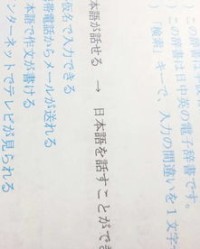 この
この電子辞書は日中英の電子辞書です。
「検索」キーで、入力の間違いを1文字
本語が話せる → 日本語を話すことができ
仮名で入力できる
帯電話からメールが送れる
本語で作文が書ける
ンターネットでテレビが見られる